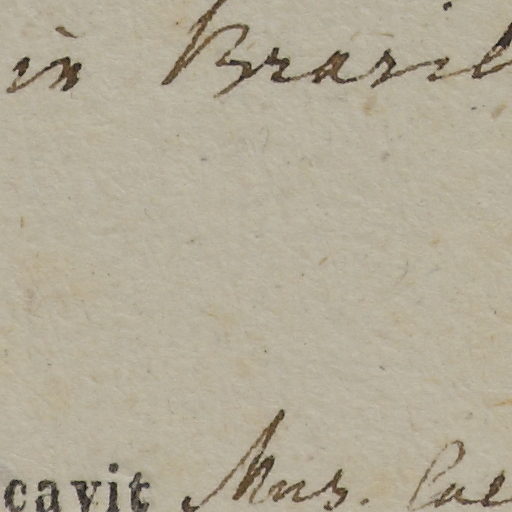 in Brasil
cavit Mus. Cae